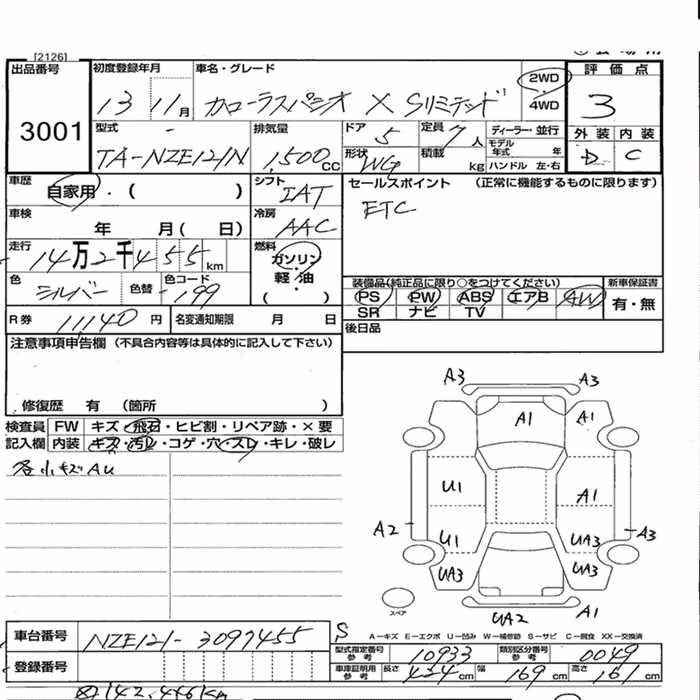 [2126]
出品番号 初度登録年月 車名・グレード 2WD 4WD 評価点
3001 13 11月 カローラスパシオ X Sリミテッド 3
外装 内装
D C
型式 排気量 ドア 定員 ディーラー・並行
TA-NZE121N 1,500CC 5 7人 モデル年式 年
形状 積載
WG kg ハンドル 左・右
車歴 自家用・( ) シフト IAT セールスポイント (正常に機能するものに限ります)
ETC
車検 年 月( 日) 冷房 AAC
走行 14万2千455km 燃料 ガソリン・軽油 ( )
色 シルバー 色替 色コード 199
装備品(純正品に限り○をつけてください) 新車保証書
PS PW ABS エアB AW 有・無
SR ナビ TV
R券 11140円 名変通知期限 月 日 後日品
注意事項申告欄 (不具合内容等は具体的に記入して下さい)
修復歴 有 (箇所 )
検査員 FW キズ・飛石・ヒビ割・リペア跡・×要
記入欄 内装 キズ・汚レ・コゲ・穴・スレ・キレ・破レ
各小キズAU
A3 A3
A1 A1
U1 A1
A2 U1 UA3 A3
UA3 UA3
スペア UA2 A1
A-キズ E-エクボ U-凹み W-補修跡 S-サビ C-腐食 XX-交換済
車台番号 NZE121-3097455 S
型式指定参考 10933 類別区分番号参考 0049
登録番号
車庫証明用参考 長さ 424cm 幅 169cm 高さ 161cm
142,446km